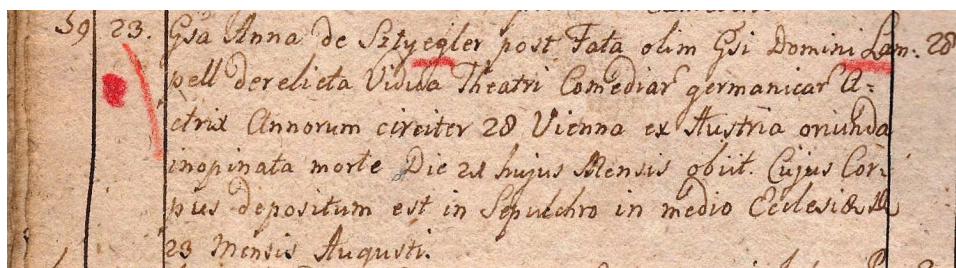 59 23. Gsa Anna de Sztyegler post Fata olim Gsi Domini Lam: 28
pell derelicta Vidua Theatri Comediar germanicar A:
ctrix Annorum circiter 28 Vienna ex Austria oriunda
inopinata morte Die 21 hujus Mensis obiit. Cujus Cor:
pus depositum est in Sepulchro in medio Ecclesiæ
23 Mensis Augusti.